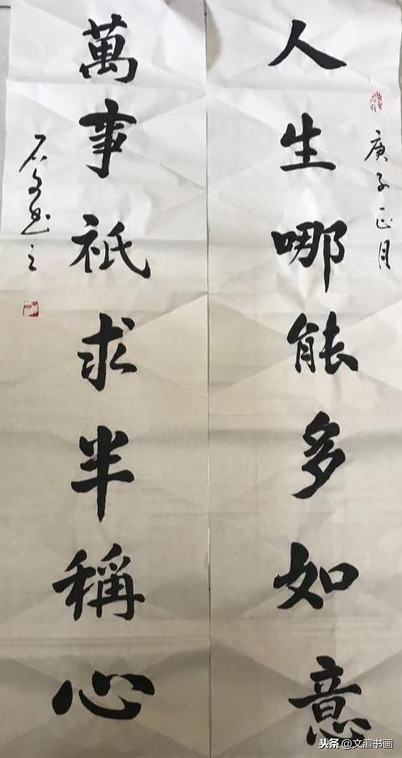 庚子正月
人生哪能多如意
萬事祇求半稱心
石文书之
头条 @文渲书画